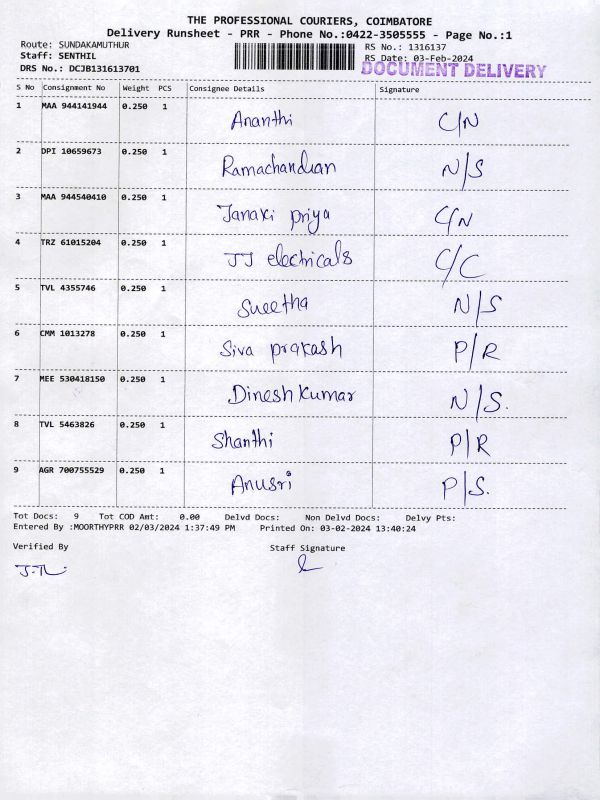 THE PROFESSIONAL COURIERS, COIMBATORE
Delivery Runsheet - PRR - Phone No.:0422-3505555 - Page No.:1
Route: SUNDAKAMUTHUR
RS No.: 1316137
Staff: SENTHIL
RS Date: 03-Feb-2024
DRS No.: DCJB131613701
DOCUMENT DELIVERY
S No Consignment No Weight PCS Consignee Details Signature
1 MAA 944141944 0.250 1 Ananthi C/N
2 DPI 10659673 0.250 1 Ramachandran N/S
3 MAA 944540410 0.250 1 Janaki priya C/N
4 TRZ 61015204 0.250 1 JJ electricals C/C
5 TVL 4355746 0.250 1 Sueetha N/S
6 CMM 1013278 0.250 1 Siva prakash P/R
7 MEE 530418150 0.250 1 Dinesh kumar N/S.
8 TVL 5463826 0.250 1 Shanthi P/R
9 AGR 700755529 0.250 1 Anusri P/S.
Tot Docs: 9 Tot COD Amt: 0.00 Delvd Docs: Non Delvd Docs: Delvy Pts:
Entered By :MOORTHYPRR 02/03/2024 1:37:49 PM Printed On: 03-02-2024 13:40:24
Verified By Staff Signature